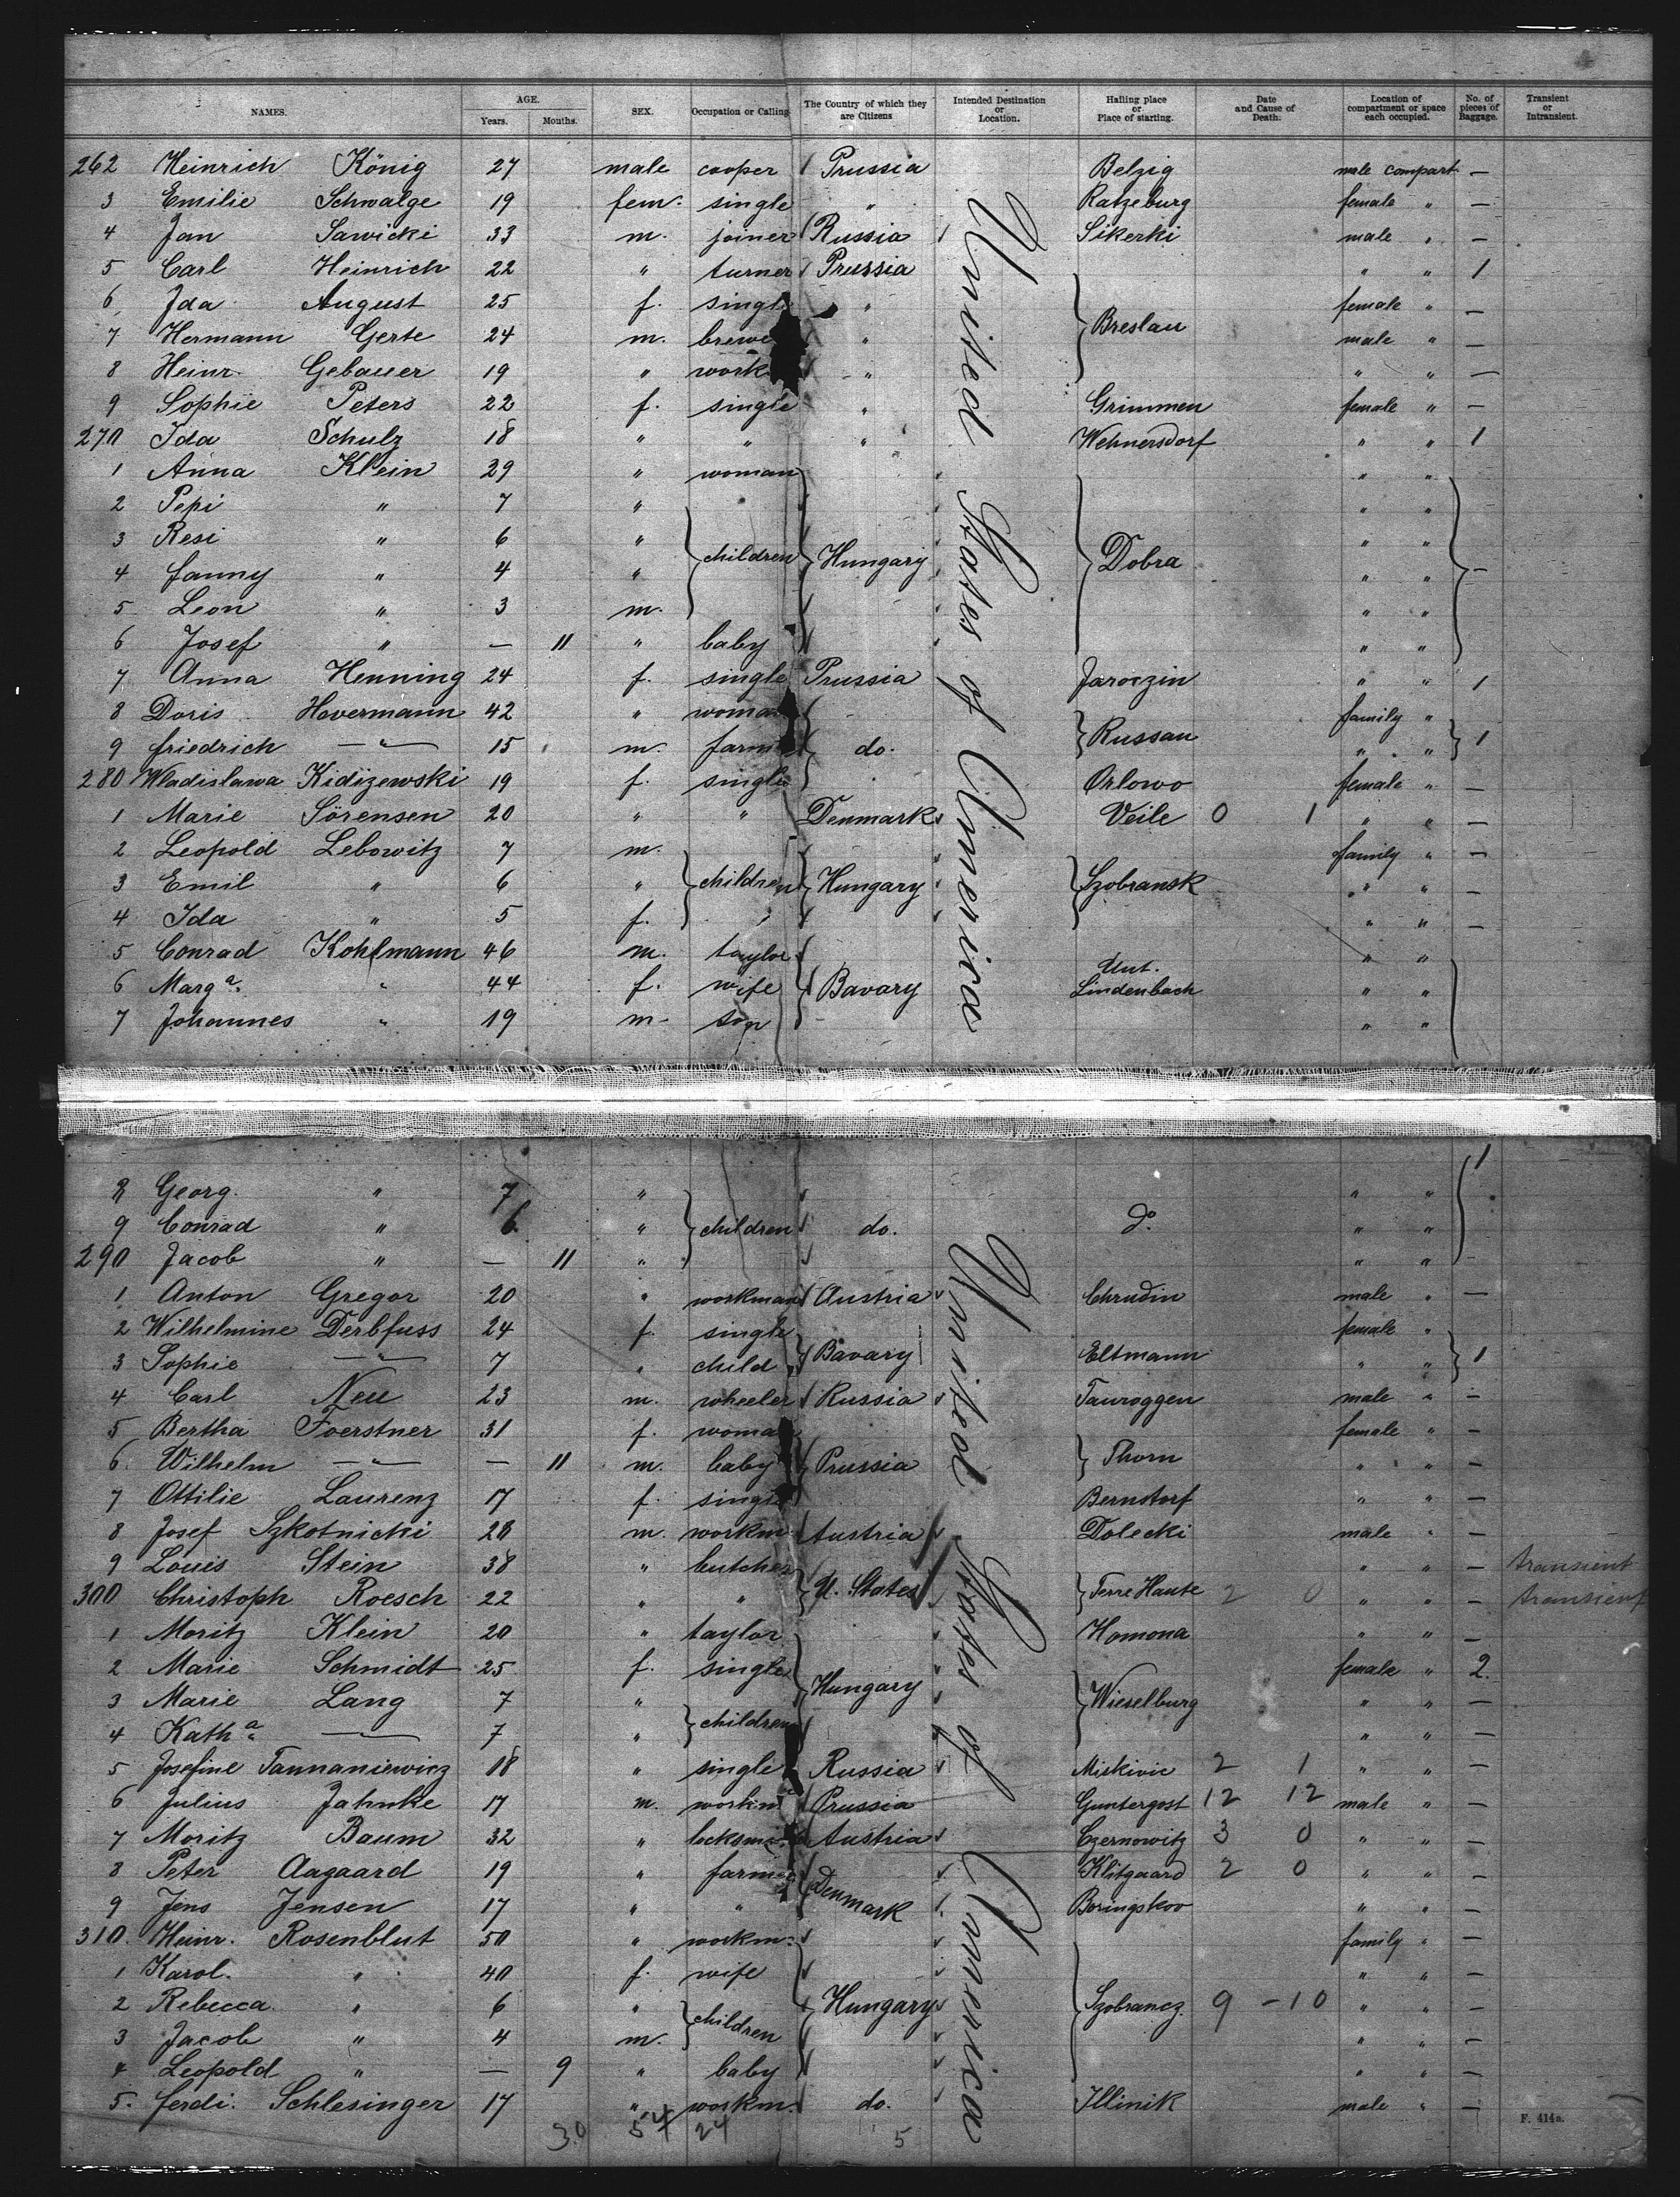 NAMES. AGE. Years. Months. SEX. Occupation or Calling The Country of which they are Citizens Intended Destination or Location. Hailing place or Place of starting. Date and Cause of Death. Location of compartment or space each occupied. No. of pieces of Baggage. Transient or Intransient.
United States of America
262 Heinrich König 27 male cooper Prussia Belzig male compart. —
3 Emilie Schwalge 19 fem. single " Ratzeburg female " —
4 Jan Sawicki 33 m. joiner Russia Sikerki male " —
5 Carl Heinrich 22 " turner Prussia " " 1
6 Ida August 25 f. single " female " —
7 Hermann Gerte 24 m. brewe " Breslau male " —
8 Heinr. Gebauer 19 " work " " " —
9 Sophie Peters 22 f. single " Grimmen female " —
270 Ida Schulz 18 " " " Wehnersdorf " " 1
1 Anna Klein 29 " woman " "
2 Pepi " 7 " " "
3 Resi " 6 " " "
4 Fanny " 4 " children Hungary Dobra " " —
5 Leon " 3 m. " "
6 Josef " — 11 " baby " "
7 Anna Henning 24 f. single Prussia Jaroczin " " 1
8 Doris Havermann 42 " woman family "
9 Friedrich — " — 15 m. farm do. Russau " " 1
280 Wladislawa Kidizewski 19 f. single Orlowo female " —
1 Marie Sörensen 20 " " Denmark Veile 0 1 " " —
2 Leopold Lebowitz 7 m. family " —
3 Emil " 6 " children Hungary Szobransk " " —
4 Ida " 5 f. " " —
5 Conrad Kohlmann 46 m. taylor " "
6 Marg<sup>a</sup>. " 44 f. wife Bavary Unt. Lindenbach " "
7 Johannes " 19 m. son " "
8 Georg. " 7 " " " 1
9 Conrad " 6 " children do. d<sup>o</sup>. " "
290 Jacob " — 11 " " "
United States of America
1 Anton Gregor 20 " workman Austria Chrudin male " —
2 Wilhelmine Derbfuss 24 f. single female "
3 Sophie — " — 7 " child Bavary Eltmann " " 1
4 Carl Neu 23 m. wheeler Russia Tauroggen male " —
5 Bertha Foerstner 31 f. woma female " —
6 Wilhelm — " — — 11 m. baby Prussia Thorn " " —
7 Ottilie Laurenz 17 f. single Bernstorf " " —
8 Josef Szkotnicki 28 m. workm. Austria Dolecki male " —
9 Louis Stein 38 " butcher " " — transient
300 Christoph Roesch 22 " " U. States Terre Haute 2 0 " " — transient
1 Moritz Klein 20 " taylor Homona " " —
2 Marie Schmidt 25 f. single female " 2.
3 Marie Lang 7 " Hungary Wieselburg " " —
4 Kath<sup>a</sup>. — 7 " children " " —
5 Josefine Tannaniewicz 18 " single Russia Miskivic 2 1 " " —
6 Julius Jahnke 17 m. workm Prussia Guntergost 12 12 male " —
7 Moritz Baum 32 " locksmi Austria Czernowitz 3 0 " " —
8 Peter Aagaard 19 " farmer Klitgaard 2 0 " " —
9 Jens Jensen 17 " " Denmark Boringskov " " —
310. Heinr. Rosenblut 50 " workm. family " —
1 Karol. " 40 f. wife " " —
2 Rebecca. " 6 " Hungary Szobrancz. 9 - 10 " " —
3 Jacob " 4 m. children " " —
4 Leopold " — 9 " baby " " —
5. Ferdi. Schlesinger 17 " workm. do. Illinik male " —
30 54 24 5
F. 414a.